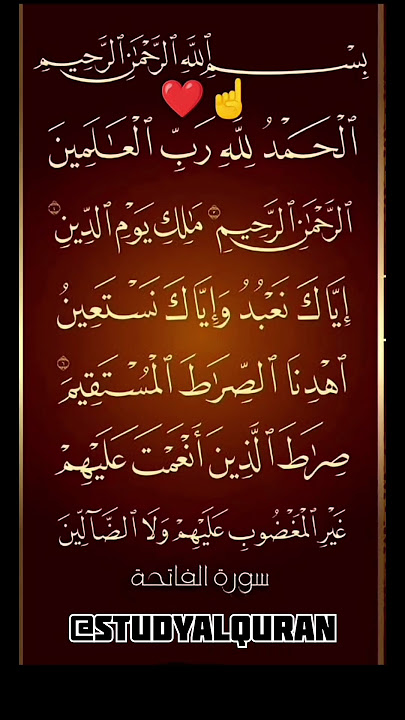 بِسْمِ ٱللَّهِ ٱلرَّحْمَٰنِ ٱلرَّحِيمِ
❤️☝️
ٱلْحَمْدُ لِلَّهِ رَبِّ ٱلْعَـٰلَمِينَ
ٱلرَّحْمَٰنِ ٱلرَّحِيمِ ۝٣ مَـٰلِكِ يَوْمِ ٱلدِّينِ ۝٤
إِيَّاكَ نَعْبُدُ وَإِيَّاكَ نَسْتَعِينُ
ٱهْدِنَا ٱلصِّرَٰطَ ٱلْمُسْتَقِيمَ ۝٦
صِرَٰطَ ٱلَّذِينَ أَنْعَمْتَ عَلَيْهِمْ
غَيْرِ ٱلْمَغْضُوبِ عَلَيْهِمْ وَلَا ٱلضَّآلِّينَ
سورة الفاتحة
@STUDYALQURAN